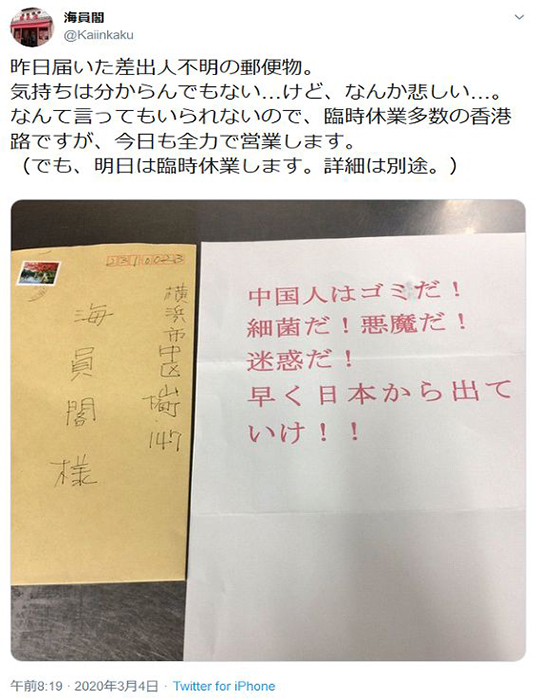 海員閣
@Kaiinkaku
昨日届いた差出人不明の郵便物。
気持ちは分からんでもない…けど、なんか悲しい…。
なんて言ってもいられないので、臨時休業多数の香港
路ですが、今日も全力で営業します。
（でも、明日は臨時休業します。詳細は別途。）
2310023
横浜市中区山下町147
海員閣様
中国人はゴミだ！
細菌だ！悪魔だ！
迷惑だ！
早く日本から出て
いけ！！
午前8:19 · 2020年3月4日 · Twitter for iPhone